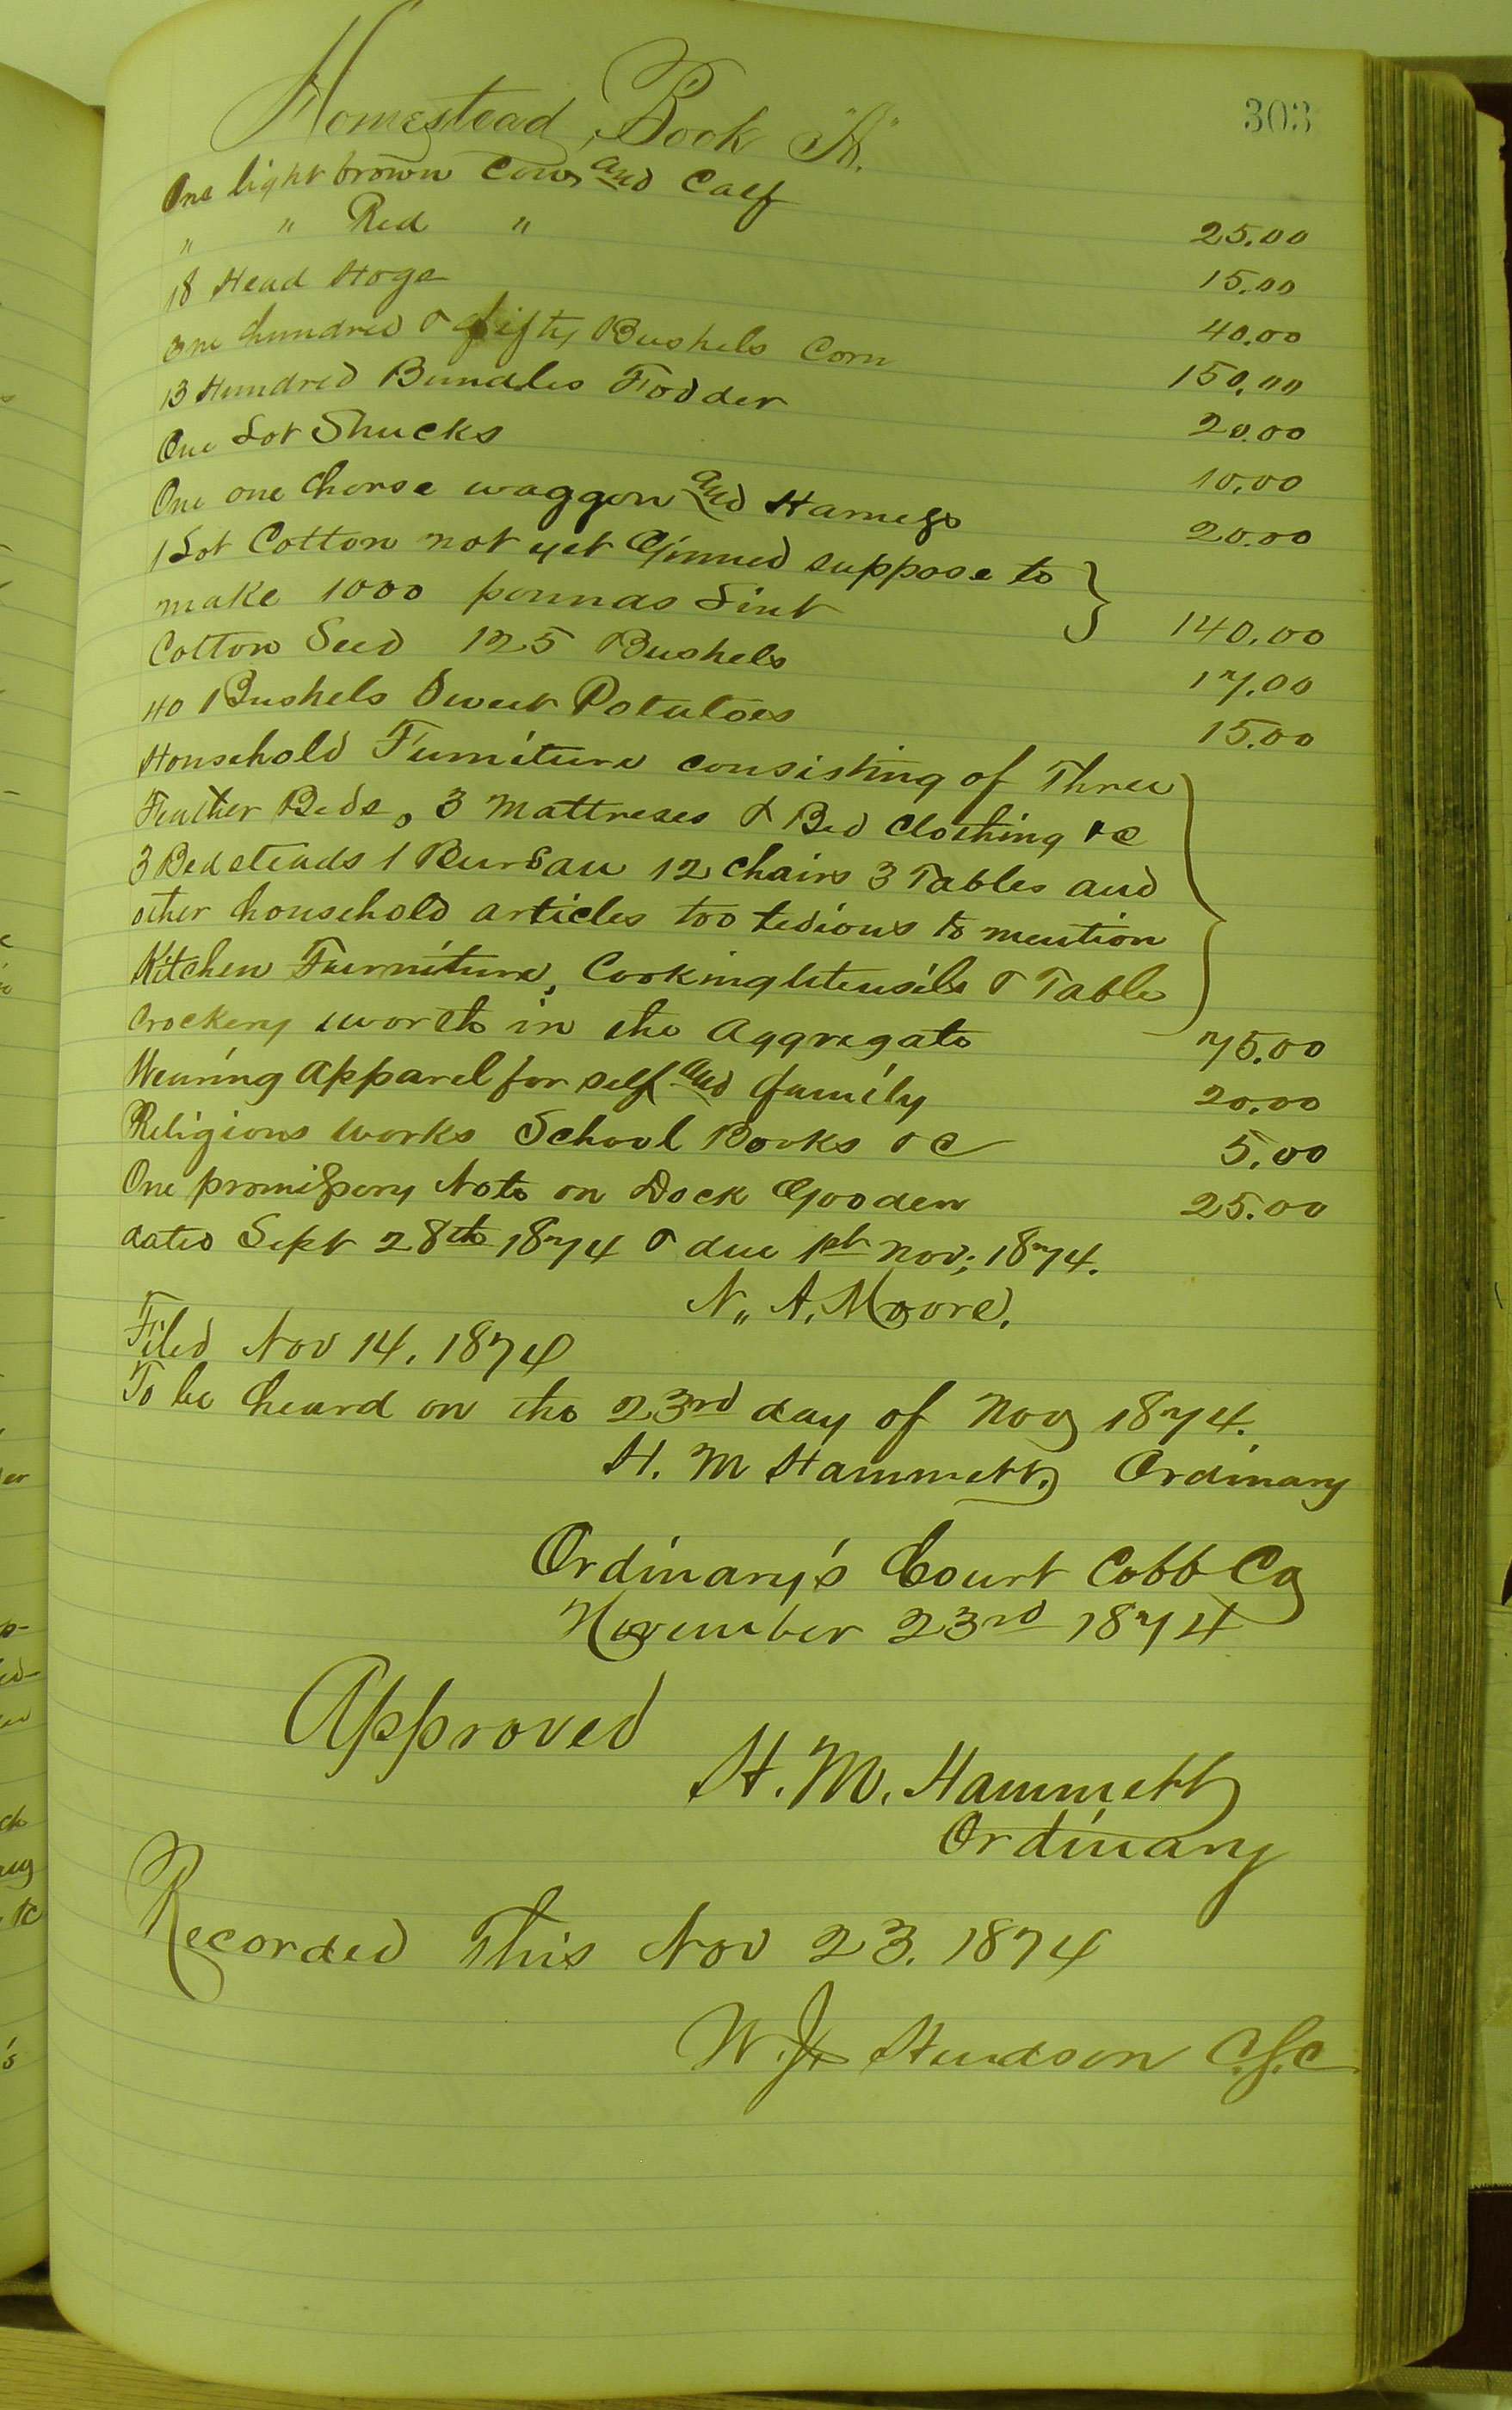 303
Homestead Book "A".
One light brown Cow and Calf 25.00
" " Red " 15.00
18 Head Hogs 40.00
One hundred & fifty Bushels Corn 150.00
13 Hundred Bundles Fodder 20.00
One Lot Shucks 10.00
One one horse waggon and Harness 20.00
1 Lot Cotton not yet Ginned suppose to
make 1000 pounds Lint 140.00
Cotton Seed 125 Bushels 17.00
40 Bushels Sweet Potatoes 15.00
Household Furniture consisting of Three
Feather Beds, 3 Mattreses & Bed clothing &c
3 Bedsteads 1 Bureau 12 chairs 3 Tables and
other household articles too tedious to mention
Kitchen Furniture, Cooking Utensils & Table
Crockery worth in the Aggregate 75.00
Wearing Apparel for self and family 20.00
Religious works School Books &C 5.00
One promissory Note on Dock Gooden 25.00
dated Sept 28th 1874 & due 1st Nov; 1874.
N. A. Moore.
Filed Nov 14, 1874
To be heard on the 23rd day of Nov 1874.
H. M Hammett, Ordinary
Ordinary's Court Cobb Co
November 23rd 1874
Approved
H. M. Hammett
Ordinary
Recorded This Nov 23. 1874
Hudson C.S.C.